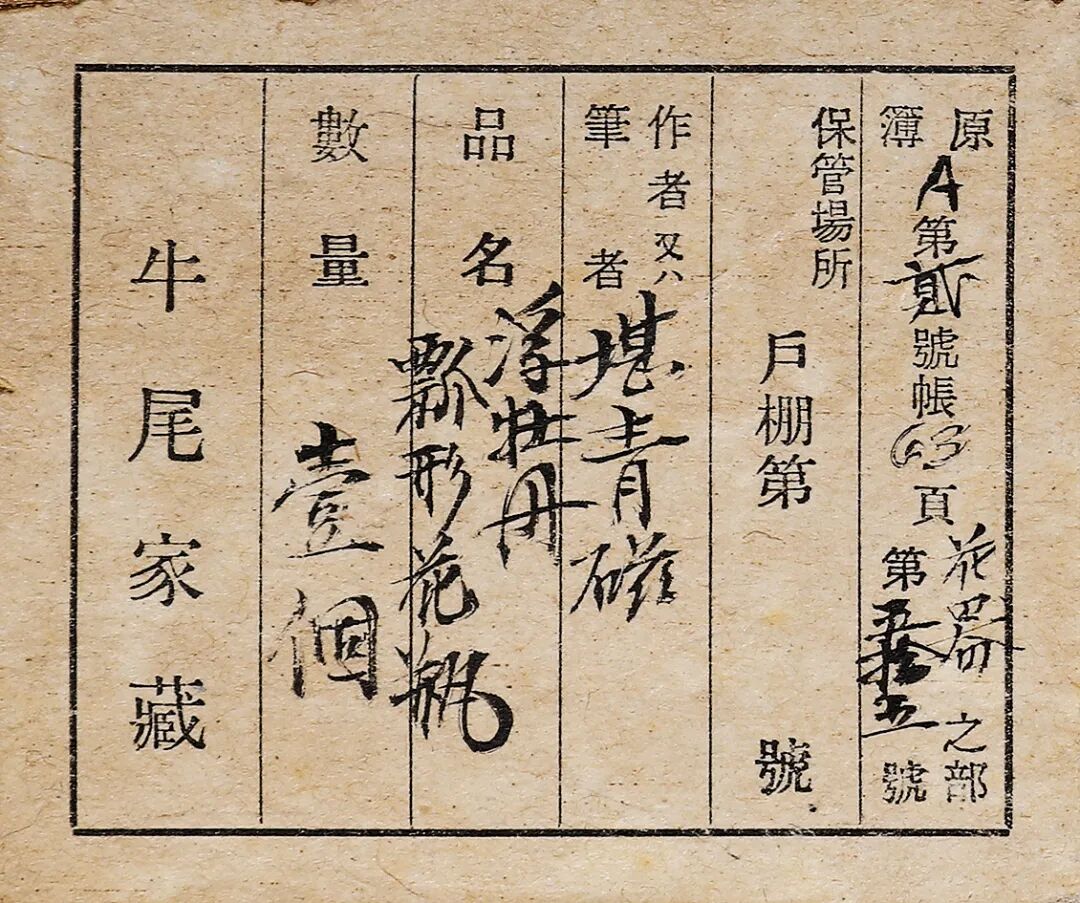 原簿 A第貳號帳63頁
花器之部
第五拾五號
保管場所
戶棚第 號
作者又ハ
筆者
堪青磁
品名
浮牡丹
瓢形花瓶
數量
壹個
牛尾家藏